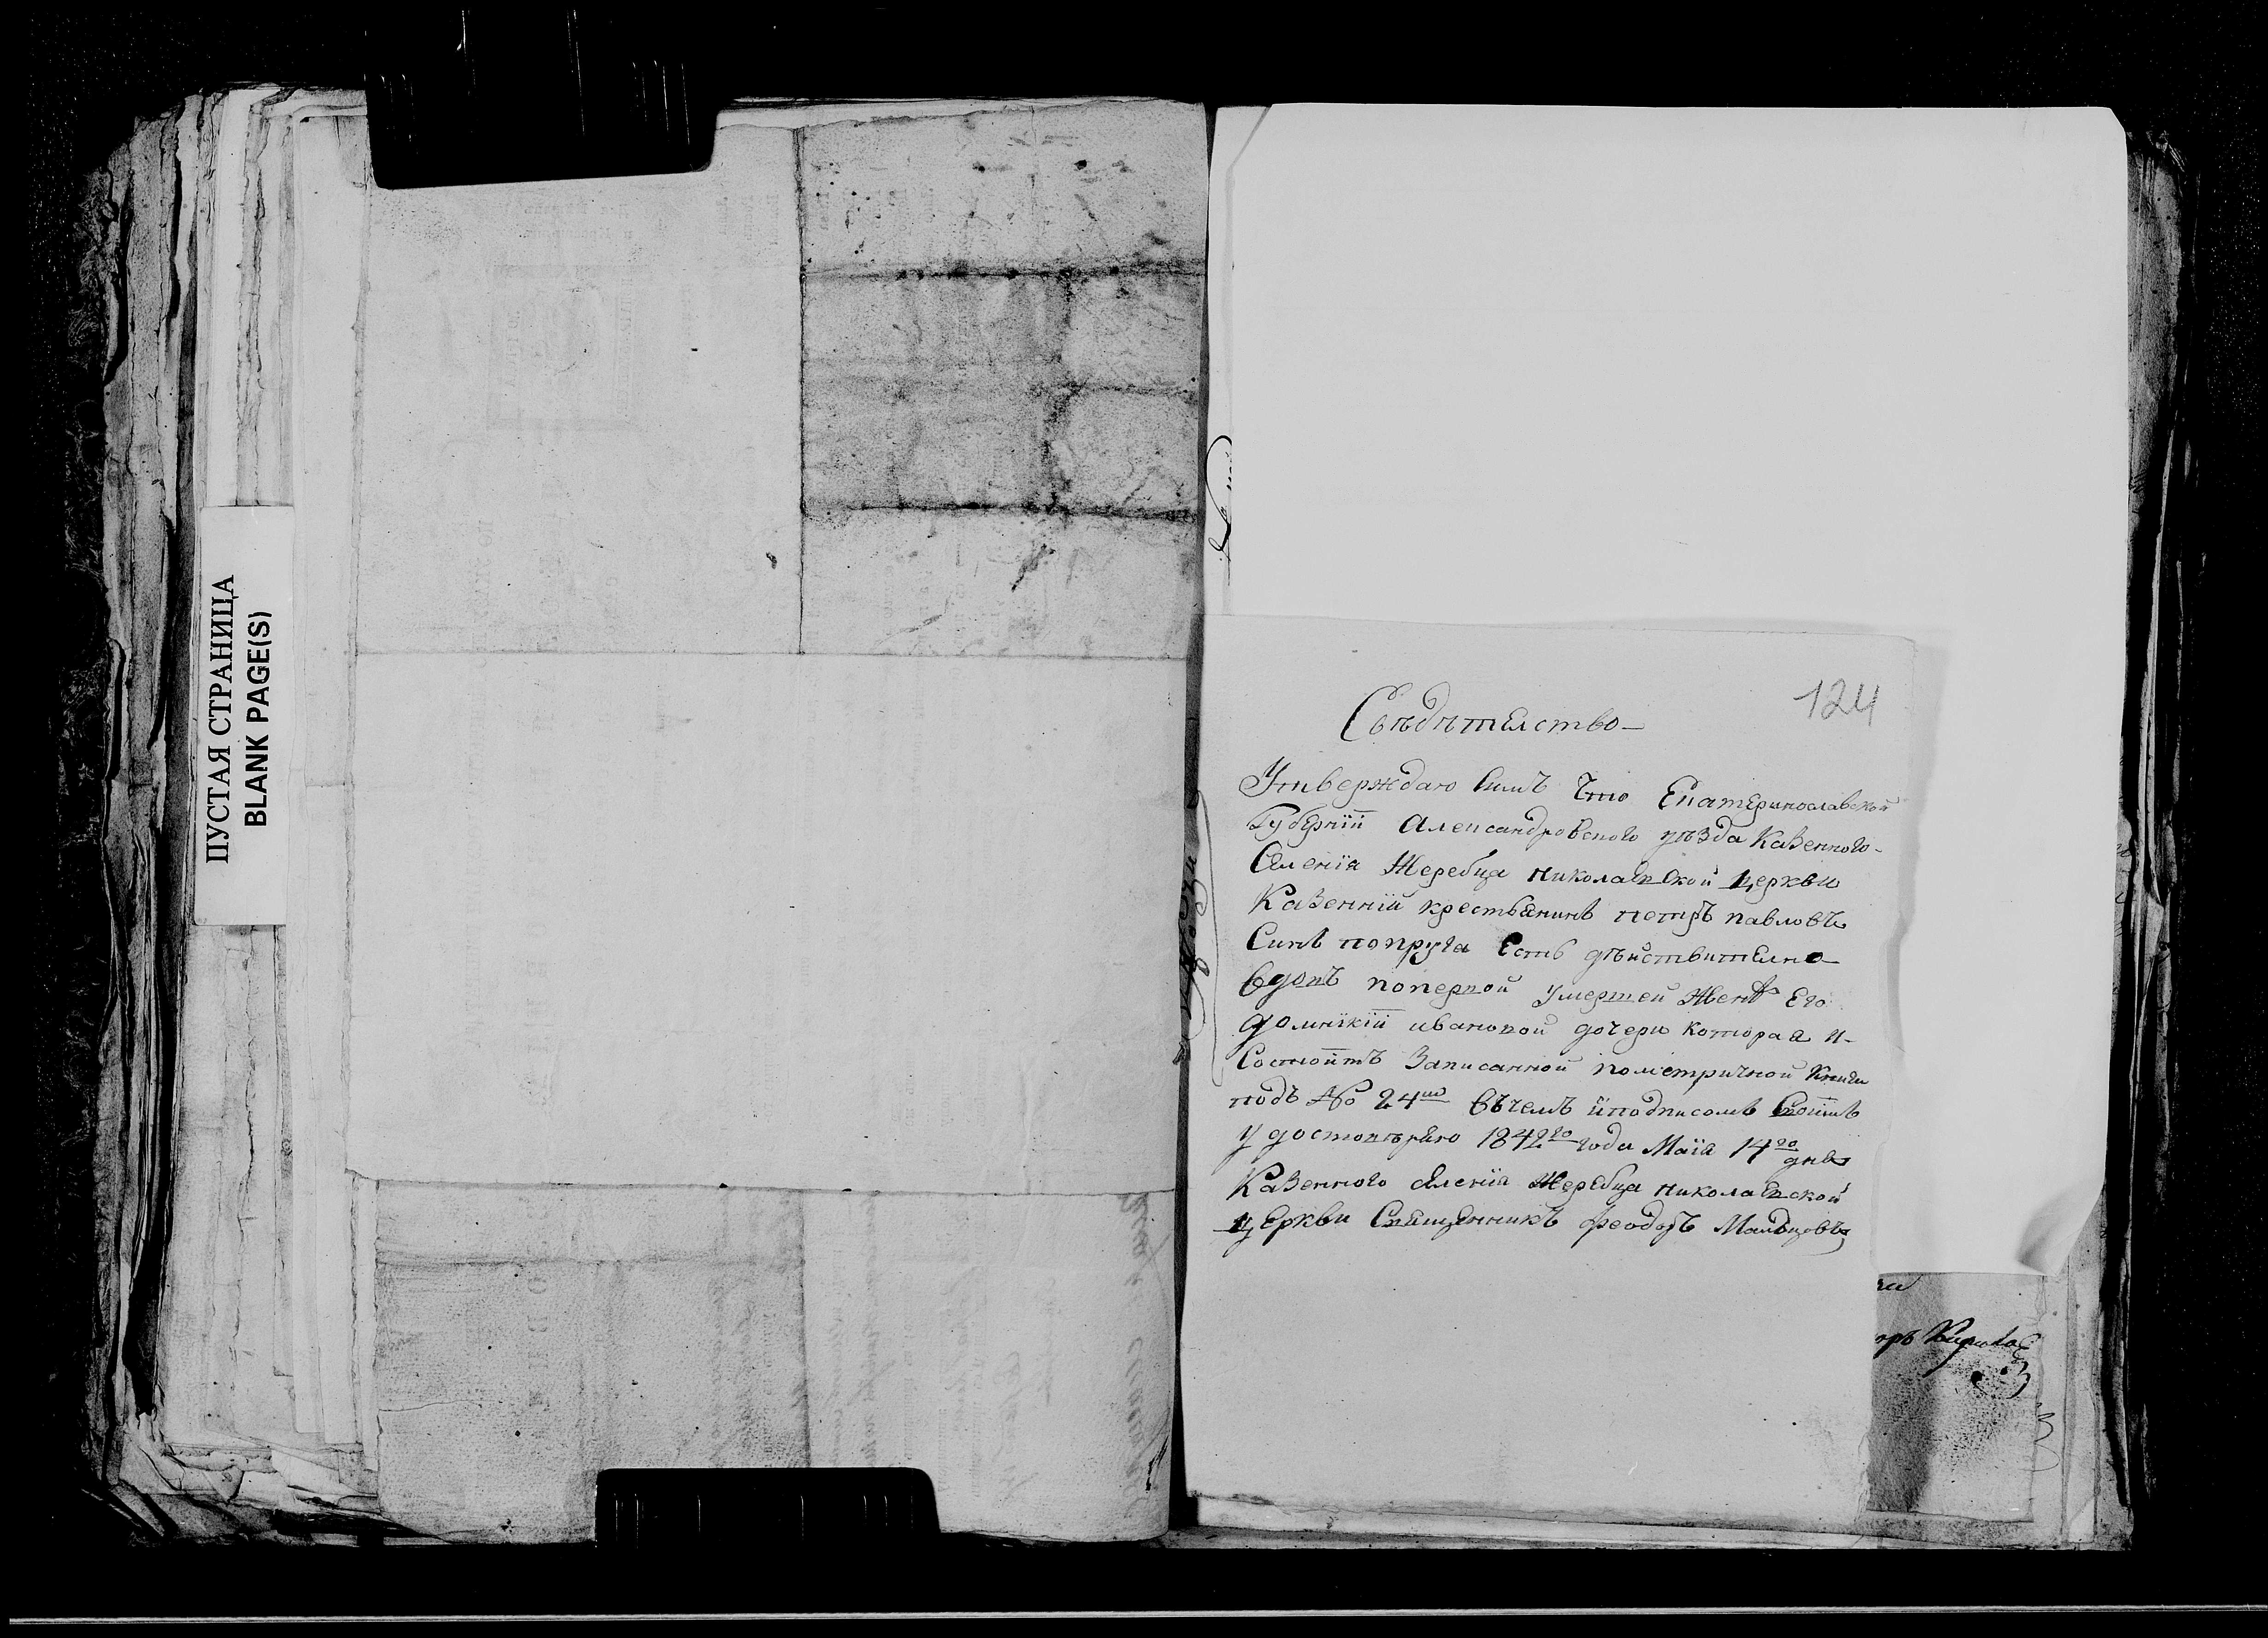 ПУСТАЯ СТРАНИЦА
BLANK PAGE(S)
124
Свѣдѣтелство
Утверждаю симъ что Екатеринославской
Губерніи Александровского уѣзда Казенного
Селенія Жеребца Николаевской церкви
Казенній крестьянинъ петръ павловъ
Синъ попруга Есть дѣйствително
вдовъ поперв­ой умершей Женѣ Его
домнікіи ивановой дочери которая и
Состоитъ Записанной пометричной книги
подъ No 24ю въчемъ иподписомъ Своимъ
удостовѣряю 1842го года Маія 14го дня
Казенного селенія Жеребца николаевской
церкви Священникъ феодоръ Мальцовъ